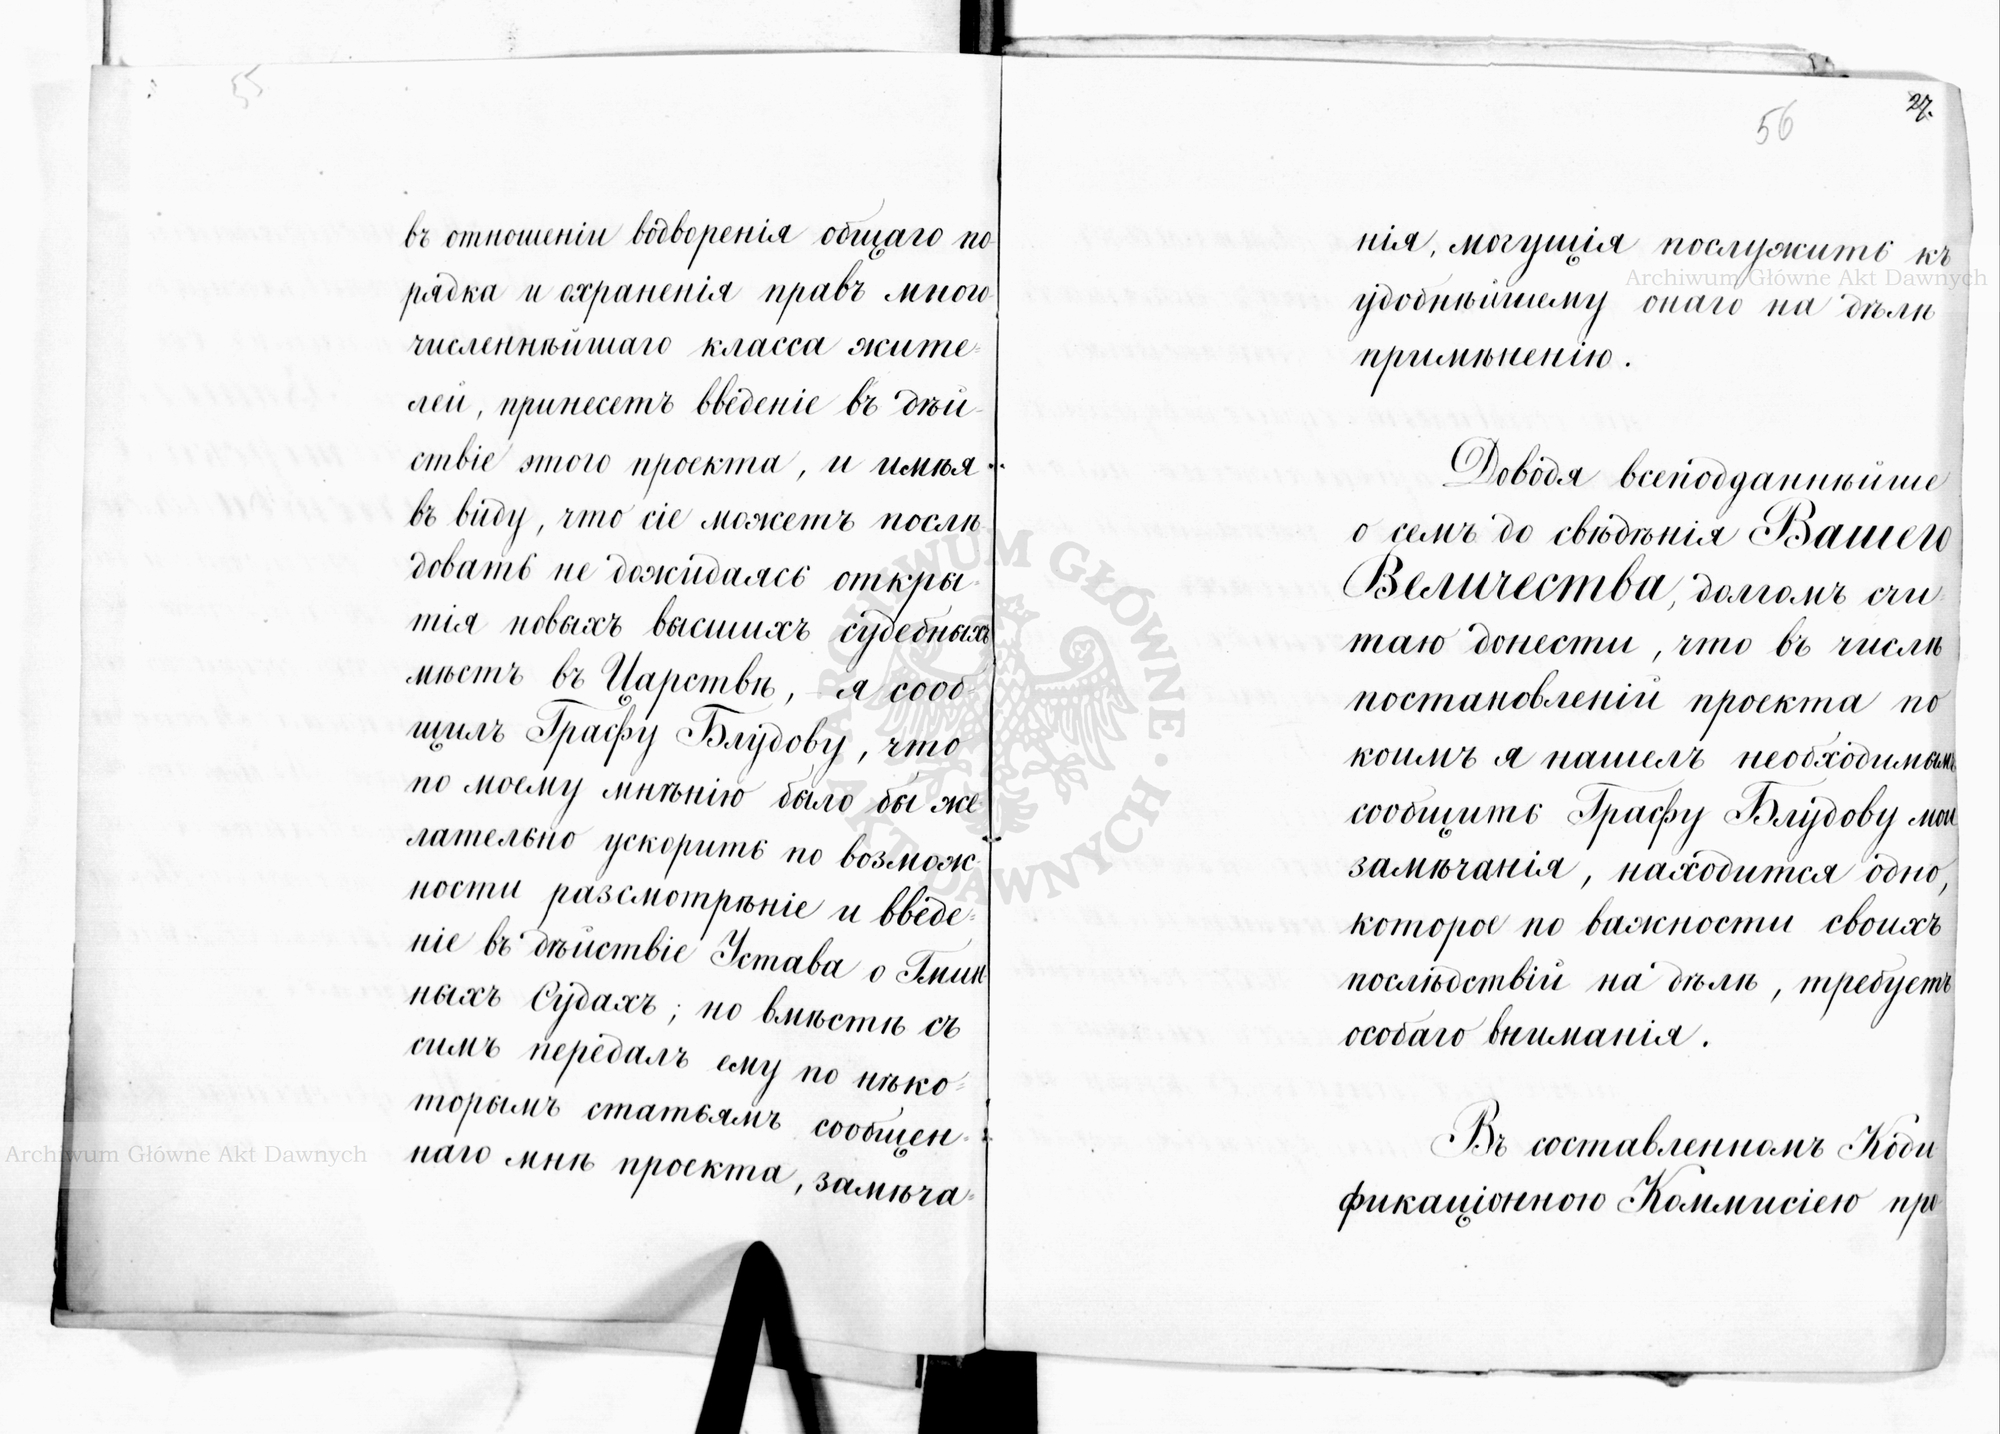 55
въ отношеніи водворенія общаго по-
рядка и охраненія правъ много-
численнѣйшаго класса жите-
лей, принесетъ введеніе въ дѣй-
ствіе этого проекта, и имѣя
въ виду, что сіе можетъ послѣ-
довать не дожидаясь откры-
тія новыхъ высшихъ судебныхъ
мѣстъ въ Царствѣ, я сооб-
щилъ Графу Блудову, что
по моему мнѣнію было бы же-
лательно ускорить по возмож-
ности разсмотрѣніе и введе-
ніе въ дѣйствіе Устава о Гмин-
ныхъ Судахъ; но вмѣстѣ съ
симъ передалъ ему по нѣко-
торымъ статьямъ сообщен-
наго мнѣ проекта, замѣча-
56
27.
нія, могущія послужить къ
удобнѣйшему онаго на дѣлѣ
примѣненію.
Доводя всеподданнѣйше
о семъ до свѣдѣнія Вашего
Величества, долгомъ счи-
таю донести, что въ числѣ
постановленій проекта по
коимъ я нашелъ необходимымъ
сообщить Графу Блудову мои
замѣчанія, находится одно,
которое по важности своихъ
послѣдствій на дѣлѣ, требуетъ
особаго вниманія.
Въ составленномъ Коди
фикаціонною Коммисіею про
Archiwum Główne Akt Dawnych
Archiwum Główne Akt Dawnych
ARCHIWUM GŁÓWNE AKT DAWNYCH